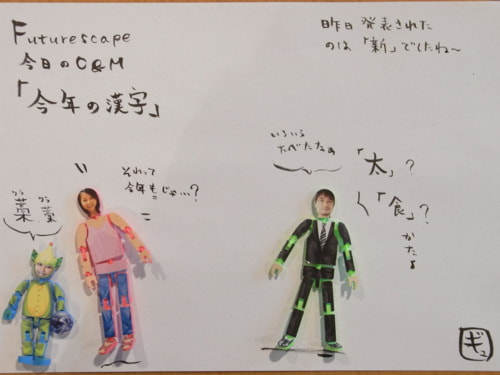 Futurescape
今日のC&M
「今年の漢字」
昨日発表された
のは「新」でしたね〜
それって
今年もじゃ…?
いろいろ
たべたなぁ
「太」?
「食」?
かな
ワラ ワラ
藁 藁
ギュ